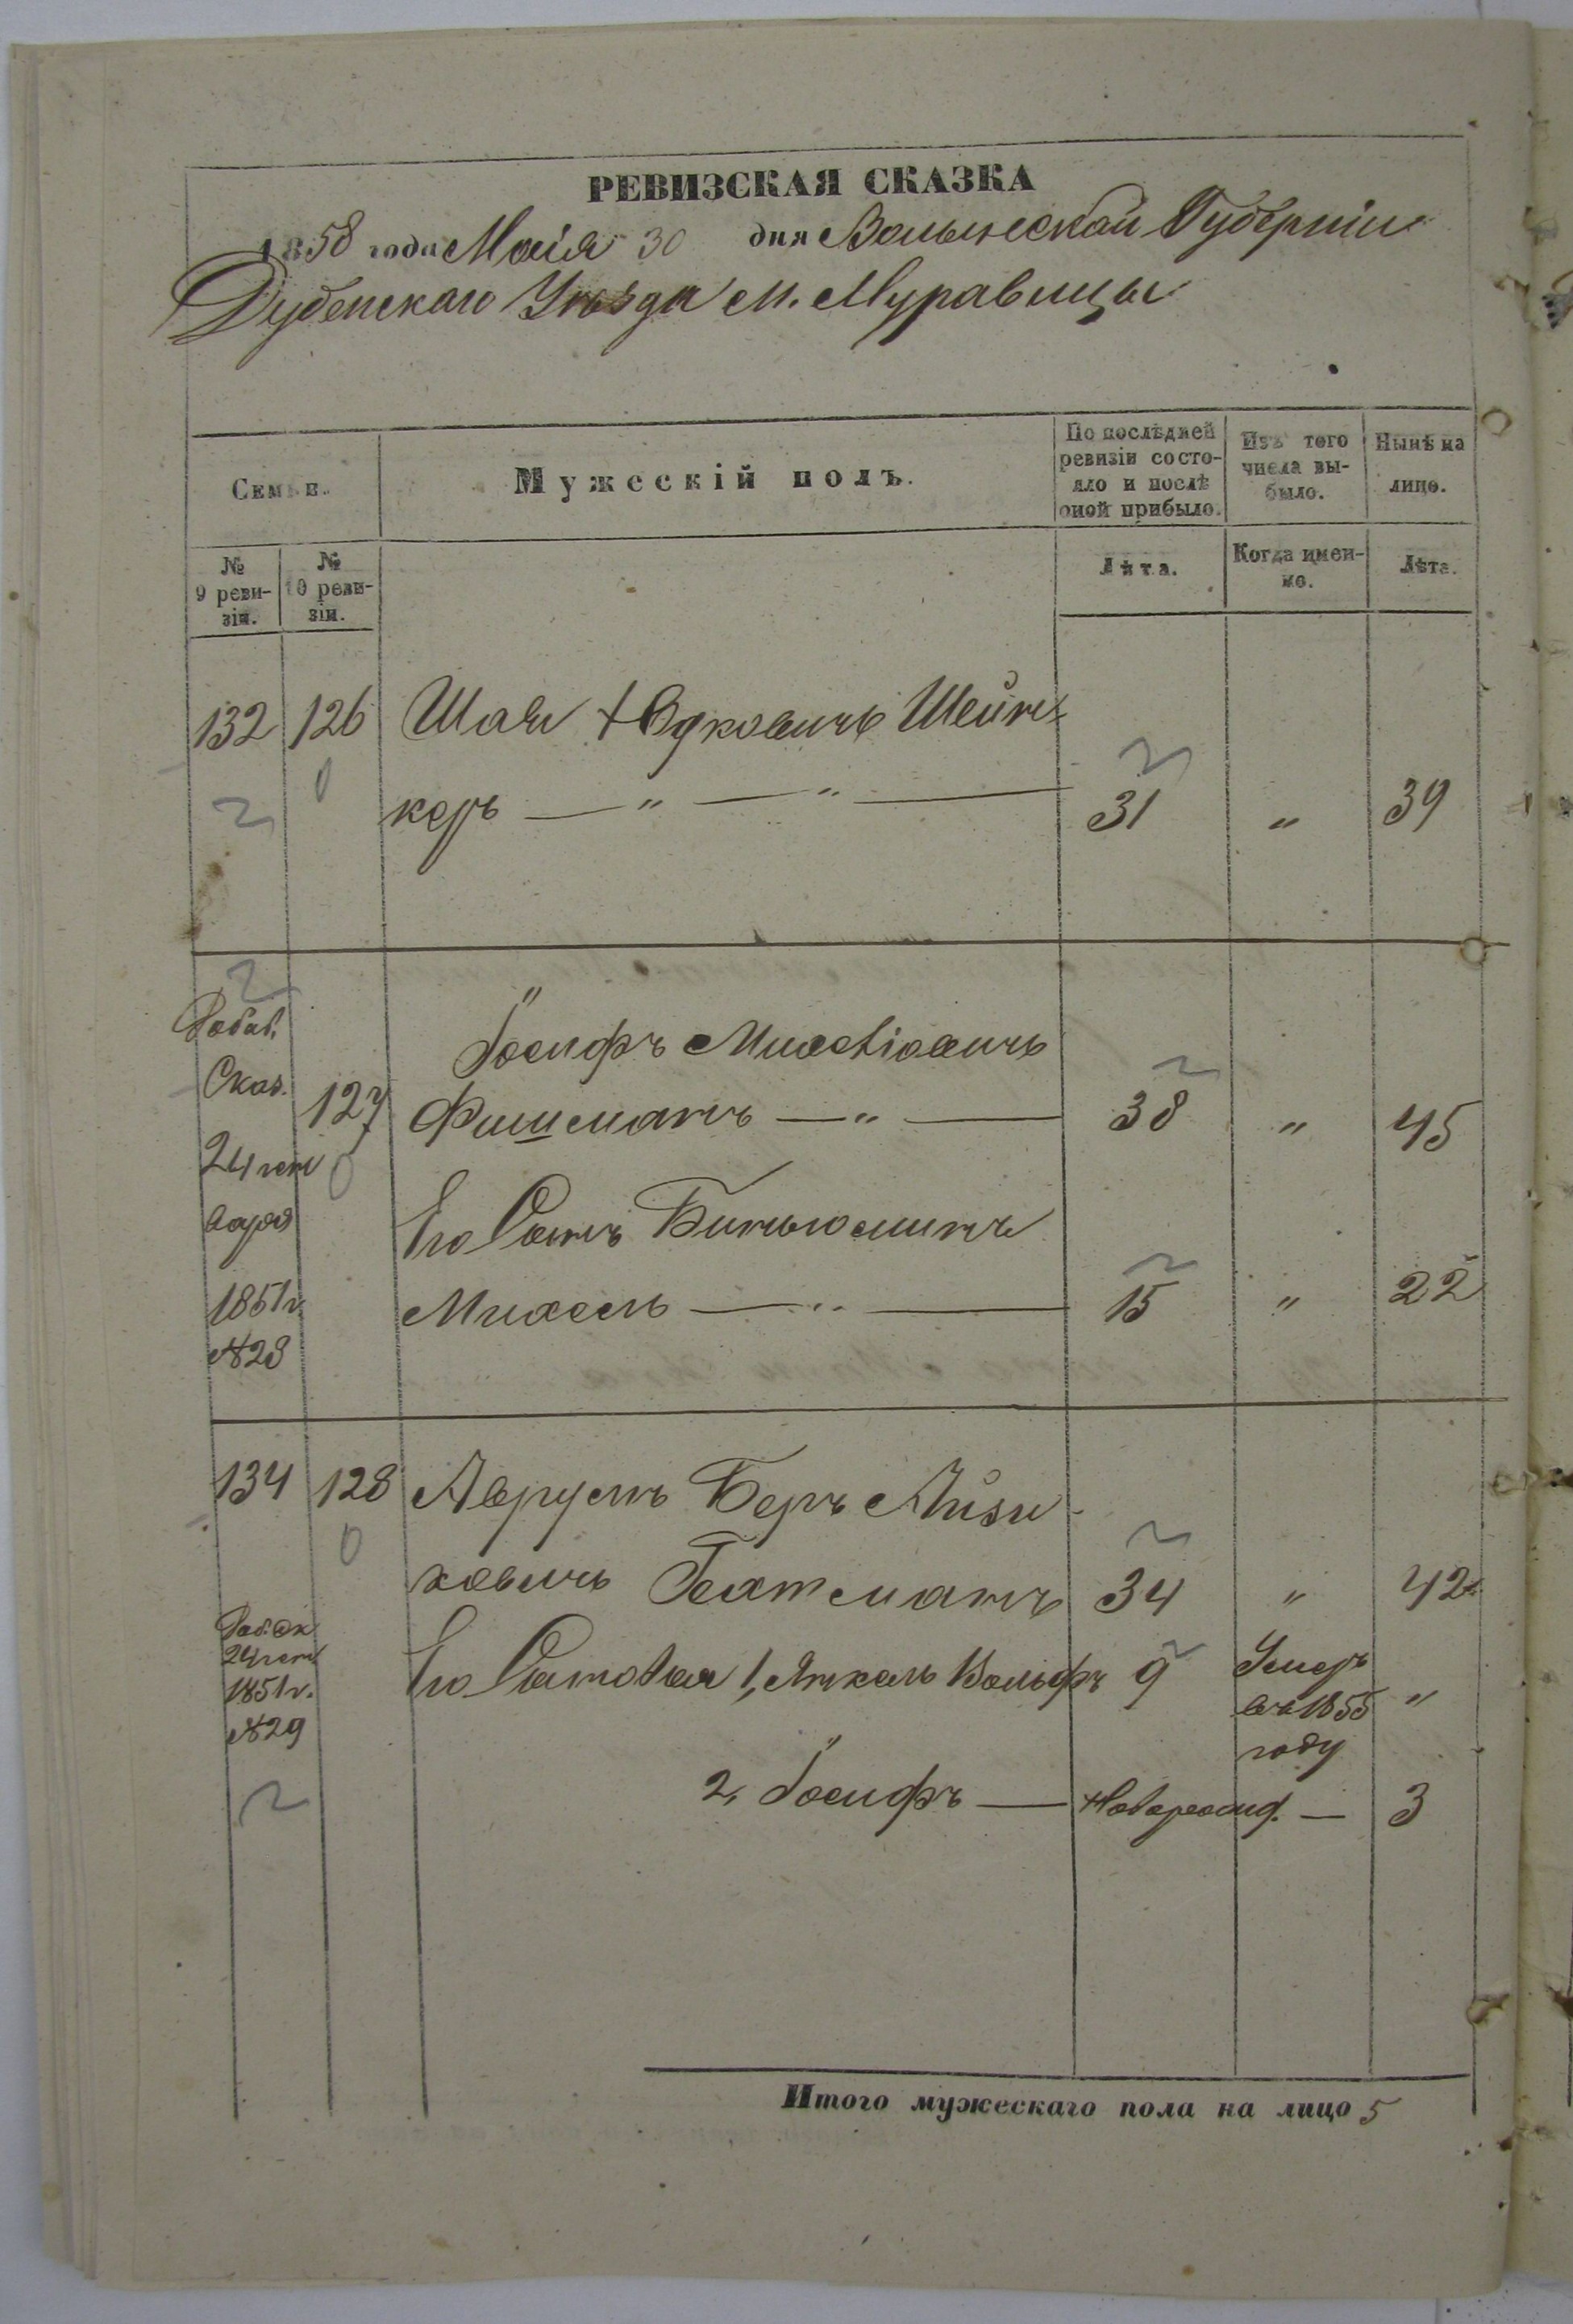 РЕВИЗСКАЯ СКАЗКА
1858 года Маія 30 дня Волынской Губерніи
Дубенскаго Уѣзда М. Муравицы
Семьи.
Мужескій полъ.
По послѣдней ревизіи состояло и послѣ оной прибыло.
Изъ того числа выбыло.
Нынѣ на лицо.
№ 9 ревизіи.
№ 10 ревизіи.
Лѣта.
Когда именно.
Лѣта.
132 126 Шая Юдковичъ Шейн-
керъ — " — " — 31 " 39
Добав.
Сказ.
24 ген
варя
1851 г.
№ 28
127
Іосифъ Михелiовичъ
Фишманъ — " — 38 " 45
Его Сынъ Биньюминъ
Михель — " — 15 " 22
134 128 Аврумъ Беръ Айзи-
ковичъ Гехтманъ 34 " 42
Доб. Ск
24 ген
1851 г.
№ 29
Его Сыновья 1, Янкель Вольфъ 9 Умеръ
въ 1855 "
году
2, Іосифъ — Новорожд. — 3
Итого мужескаго пола на лицо 5